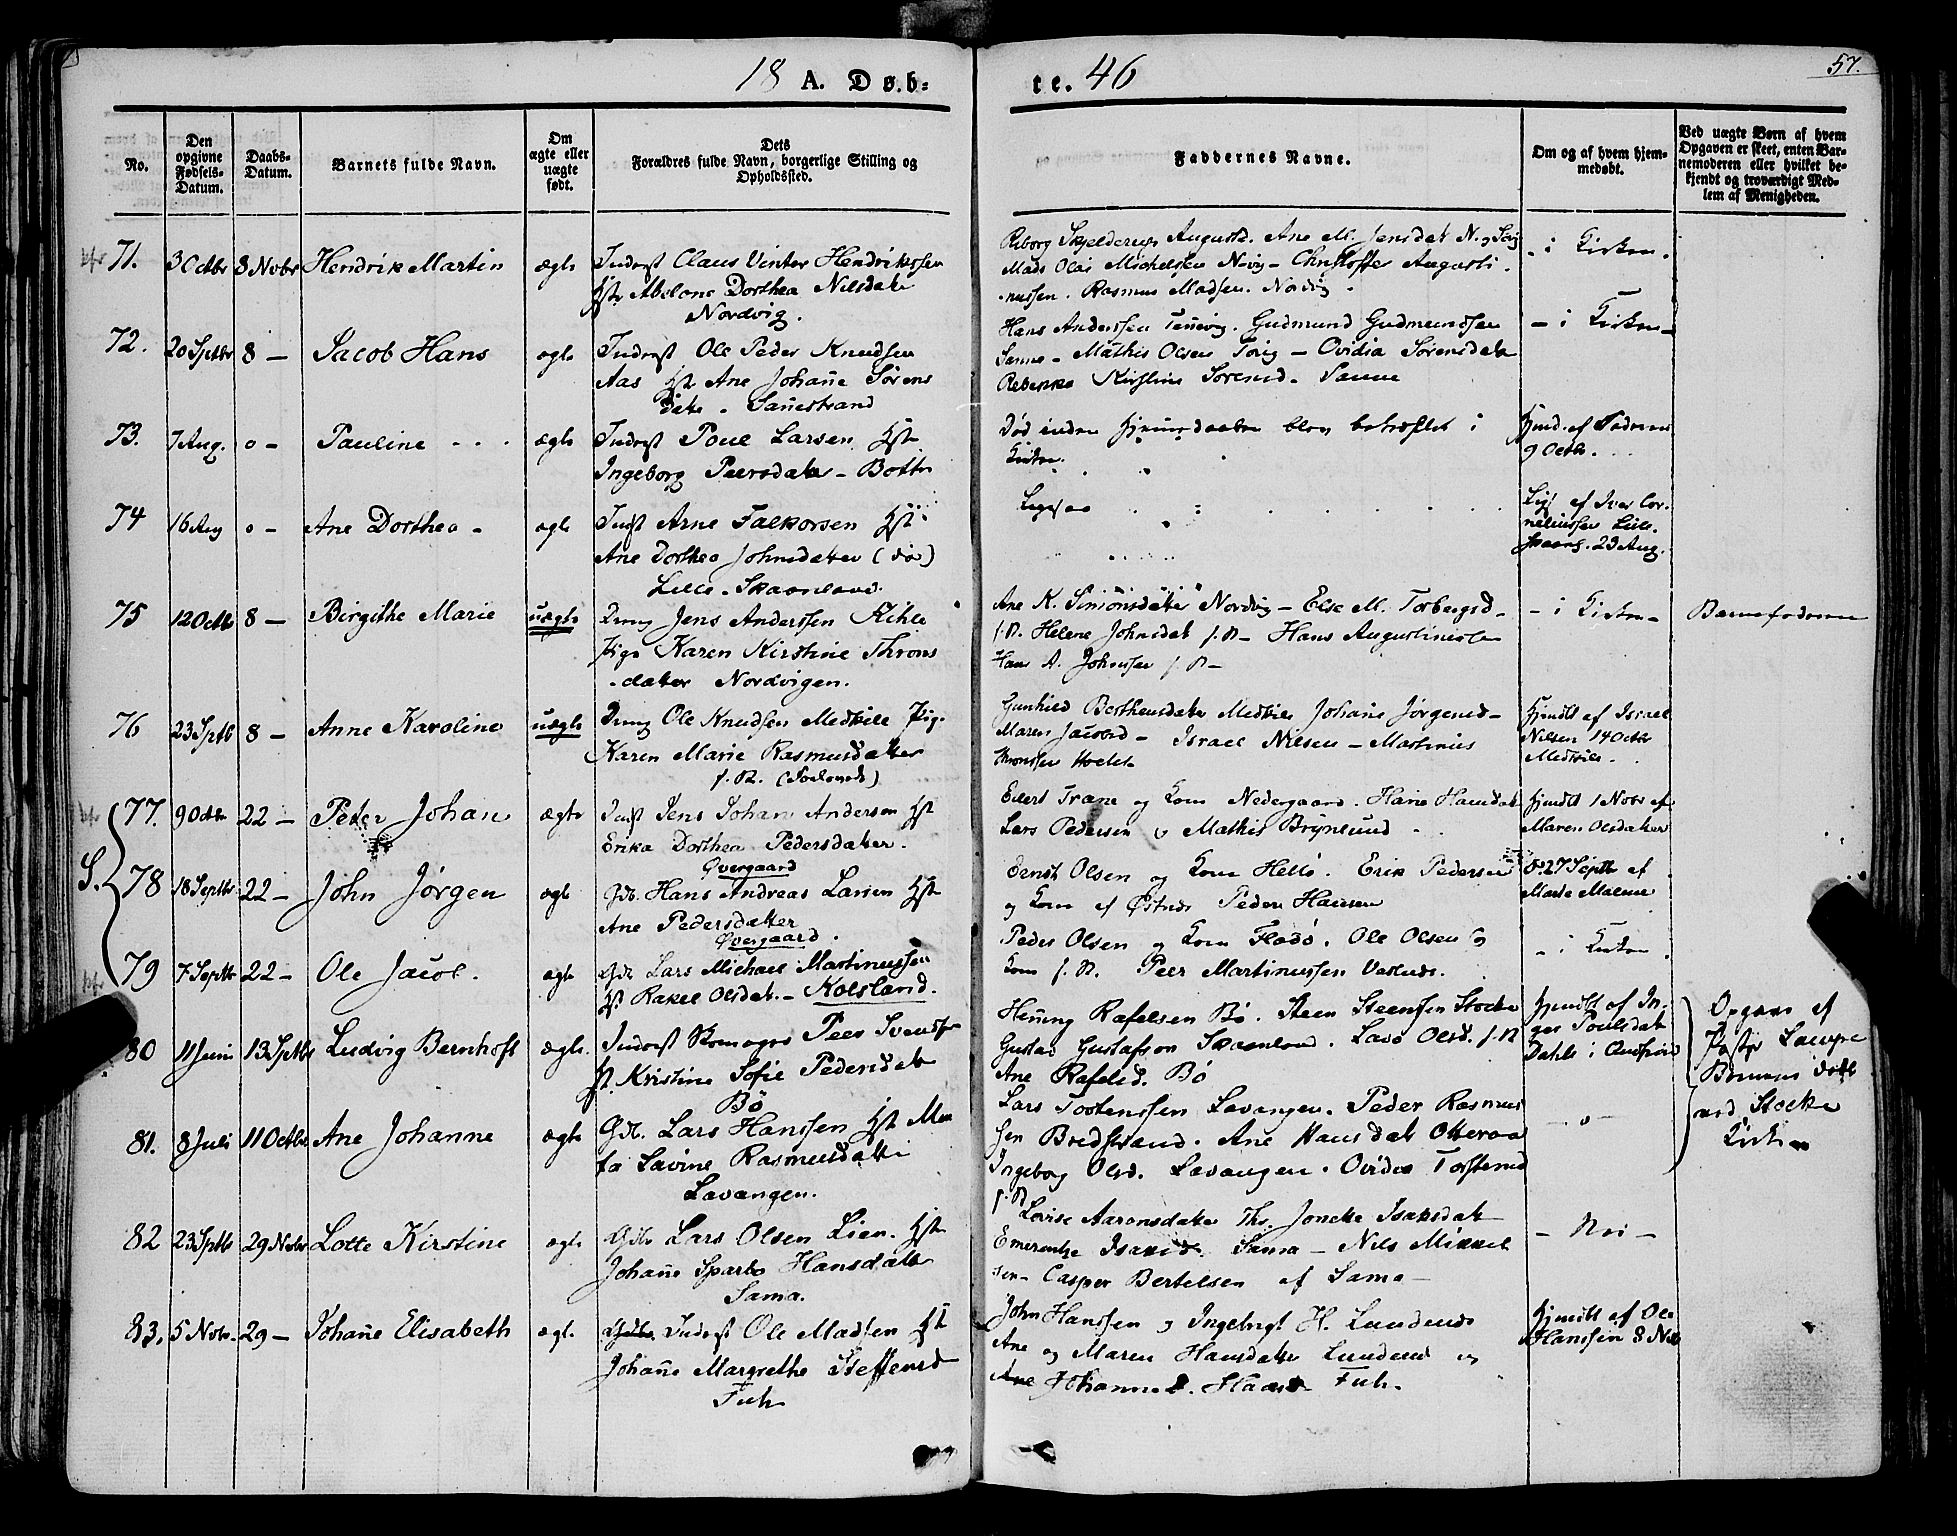 18 A. Døb: te. 46
57.
No.
Den opgivne Fødsels-Datum.
Daabs-Datum.
Barnets fulde Navn.
Om ægte eller uægte født.
Dets Forældres fulde Navn, borgerlige Stilling og Opholdssted.
Faddernes Navne.
Om og af hvem hjemmedøbt.
Ved uægte Børn af hvem
Opgaven er skeet, enten Bar-
nemoderen eller hvilket be-
kjendt og troværdigt Med-
lem af Menigheden.
71. 3 Octbr 8 Novbr Hendrik Martin ægte Inderst Claus Vinter Hendriksen
Hst Abelone Dorthea Nilsdatter
Nordvig.
Augusti. Ane M. Jensdat
Mads Olai Michelsen Nvig – Christoffer Augusti
nussen. Rasmus Madsen. Nordvig.
– i Kirken.
72. 20 Septbr 8 – Jacob Hans ægte Inderst Ole Peder Knudsen
Aas Hst Ane Johanne Sørens
datr. Sanestrand
Hans Anderssen Gudmund Gudmundsen
Mathis Olsen – Ovidia Sørensdatr
Rebekka Kirstine Sørensd.
– i Kirken –
73. 7 Aug. 0 – Pauline ægte Inderst Poul Larsen Hst
Ingeborg Peersdatr –
Død inden Hjemmedaaben blev bekræftet i
Kirken.
Hjmd. af Faderen
9 Octbr.
74 16 Aug 0 – Ane Dorthea – ægte Indst Arne Falkorsen Hst
Ane Dorthea Johnsdatter (død)
Lille-Skaanland.
Ligesaa
af Iver Cor-
neliussen Lille
Skaanl. 23 Aug.
75 12 Octbr 8 – Birgithe Marie uægte Ung Jens Anderssen Kihle
Pige Karen Kirstine Throns
datter Nordvigen.
Ane K. Simonsdatter Nordvig – Else M. Torbergsd –
s. St. Helene Johnsdat s. St – Hans Augustinussen
Hans A. Johnssen s. St –
– i Kirken –
Barnefaderen
76 23 Septb 8 – Anne Karoline uægte Ung Ole Knudsen Medkile Pig.
Karen Marie Rasmusdatter
s. St.
Gunhild Berthensdatter Medkile Johanne Jørgensd –
Maren Jacobsd – Israel Nilsen – Martinus
Thronssen
Hjmdt af Israel
Nilsen 14 Octbr
Medkile.
S.
77. 9 Octbr 22 – Peder Johan ægte Indst Jens Johan Andersen Hst
Erika Dorthea Pedersdatter.
Overgaard
Eilert Trane og Kone Nedergaard. Hansdat
Lars Pedersen & Mathis Brynlund
Hjmdt 1 Novbr af
Maren Olsdatter
78 18 Septbr 22 – John Jørgen ægte Gdb. Hans Andreas Larsen Hst
Ane Pedersdatter
Overgaard.
Ernst Olsen og Kone Hello. Erik Pedersen
og Kone af Østnes Peder Hansen
27 Septbr af
79 7 Septbr 22 – Ole Jacob. ægte Gdb Lars Michael Martinussen
Hst Rakel Olsdat. – Kolsland.
Peder Olsen og Kone Fladø. Ole Olsen og
Kone s. St. Peer Martinussen
– i Kirken
80 11 Juni 13 Septbr Ludvig Bernhoft ægte. Inderst Skomager Peer Svends
Hst Kristine Sofie Pedersdatr
Bø
Henning Rafelsen Bø. Steen Steensen Stocke
Gustav Gustafson Skaanland. Lava Olsd. s. St
Ane Rafelsd. Bø
Hjemdt af In-
ger Poulsdat
Opgave af
81. 8 Juli 11 Octbr Ane Johanne ægte Gdb. Lars Hanssen Hst Mar
ta Lavine Rasmusdatter
Lavangen.
Lars Tostenssen Lavangen. Peder Rasmus
sen Bredstrand. Ane Hansdat Otteraa
Ingeborg Olsd. Lavangen. Ovidia Torstensd
s. St
– o –
Stocke
Kirken
82 23 Septbr 29 Novbr Lotte Kirstine ægte Gdb Lars Olsen Lien. Hst
Johanne Sparbo Hansdattr
Sama.
Lovise Aaronsdatter Ths. Joncke Isaksdat
Emerentze Isaksd. Sama – Nils Mikkel
sen – Casper Bertelsen af Sama –
– Nei –
83. 5 Novbr. 29 – Johanne Elisabeth ægt. Inderst Ole Madsen Hst
Johanne Margrethe Steffensd
John Hanssen og Ingebrigt H. Lundenes
Ane og Maren Hansdatter Lundenes og
Hjemdt af Ole
Hanssen 8 Nvb